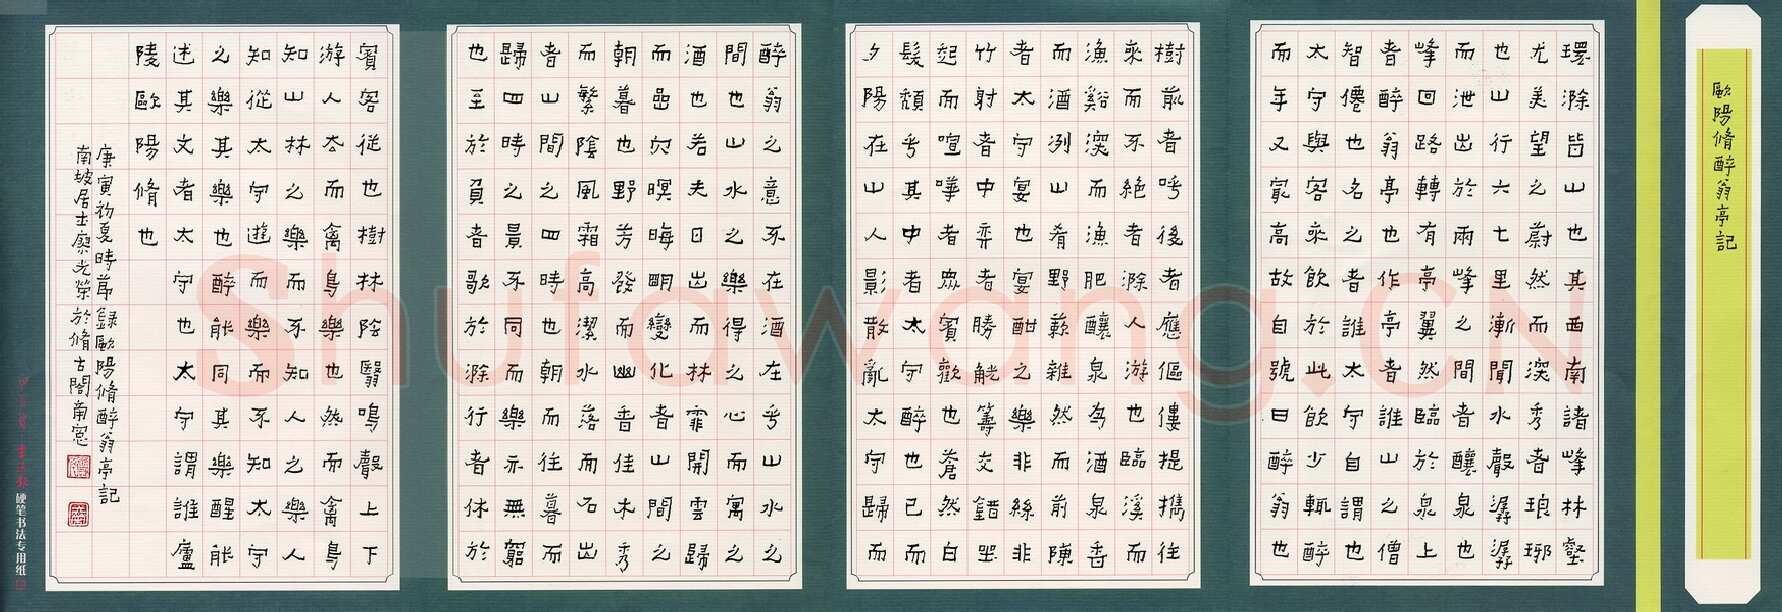 歐陽脩醉翁亭記
環滁皆山也其西南諸峰林壑
尤美望之蔚然而深秀者琅琊
也山行六七里漸聞水聲潺潺
而泄出於兩峰之間者釀泉也
峰回路轉有亭翼然臨於泉上
者醉翁亭也作亭者誰山之僧
智僊也名之者誰太守自謂也
太守與客來飲於此飲少輒醉
而年又最高故自號曰醉翁也
樹前者呼後者應傴僂提攜往
來而不絕者滁人游也臨溪而
漁谿深而漁肥釀泉為酒泉香
而酒冽山肴野蔌雜然而前陳
者太守宴也宴酣之樂非絲非
竹射者中弈者勝觥籌交錯坐
起而喧嘩者眾賓歡也蒼然白
髮頹乎其中者太守醉也已而
夕陽在山人影散亂太守歸而
醉翁之意不在酒在乎山水之
間也山水之樂得之心而寓之
酒也若夫日出而林霏開雲歸
而嵒穴暝晦明變化者山間之
朝暮也野芳發而幽香佳木秀
而繁陰風霜高潔水落而石出
者山間之四時也朝而往暮而
歸四時之景不同而樂亦無窮
也至於負者歌於滁行者休於
賓客從也樹林陰翳鳴聲上下
游人去而禽鳥樂也然而禽鳥
知山林之樂而不知人之樂人
知從太守遊而樂而不知太守
之樂其樂也醉能同其樂醒能
述其文者太守也太守謂誰廬
陵歐陽脩也
庚寅初夏時節錄歐陽脩醉翁亭記
南坡居士廖光榮於脩古閣南窗
硬笔书法专用纸
Shufawang.CN